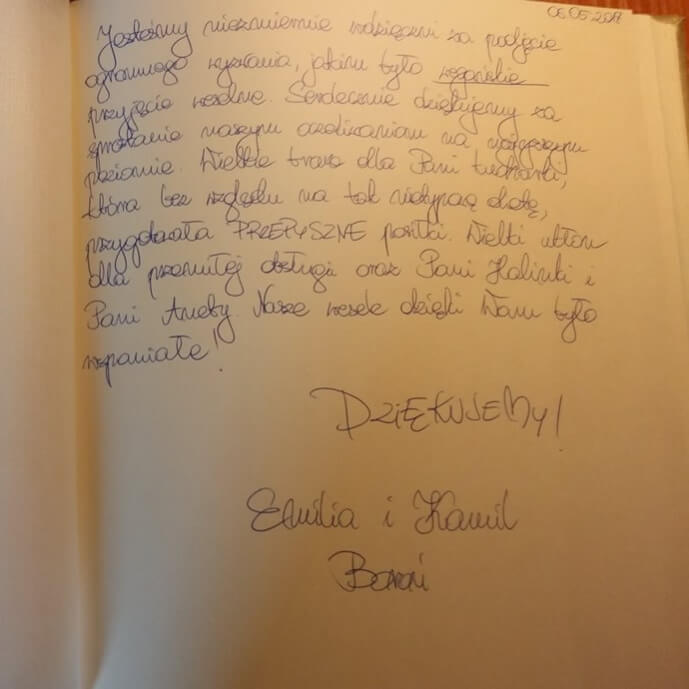 06.05.2018
Jesteśmy niezmiernie wdzięczni za podjęcie
ogromnego wyzwania, jakim było wegańskie
przyjęcie weselne. Serdecznie dziękujemy za
sprostanie naszym oczekiwaniom na najwyższym
poziomie. Wielkie brawa dla Pani kucharki,
która bez względu na tak nietypową dietę,
przygotowała PRZEPYSZNE posiłki. Wielki ukłon
dla przemiłej obsługi oraz Pani Halinki i
Pani Anety. Nasze wesele dzięki Wam było
wspaniałe!
DZIĘKUJEMY!
Emilia i Kamil